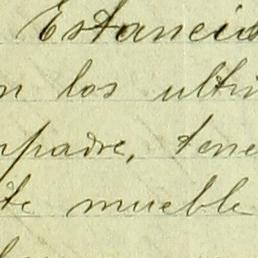 Estancia
n los ultim
mpadre, tene
te mueble